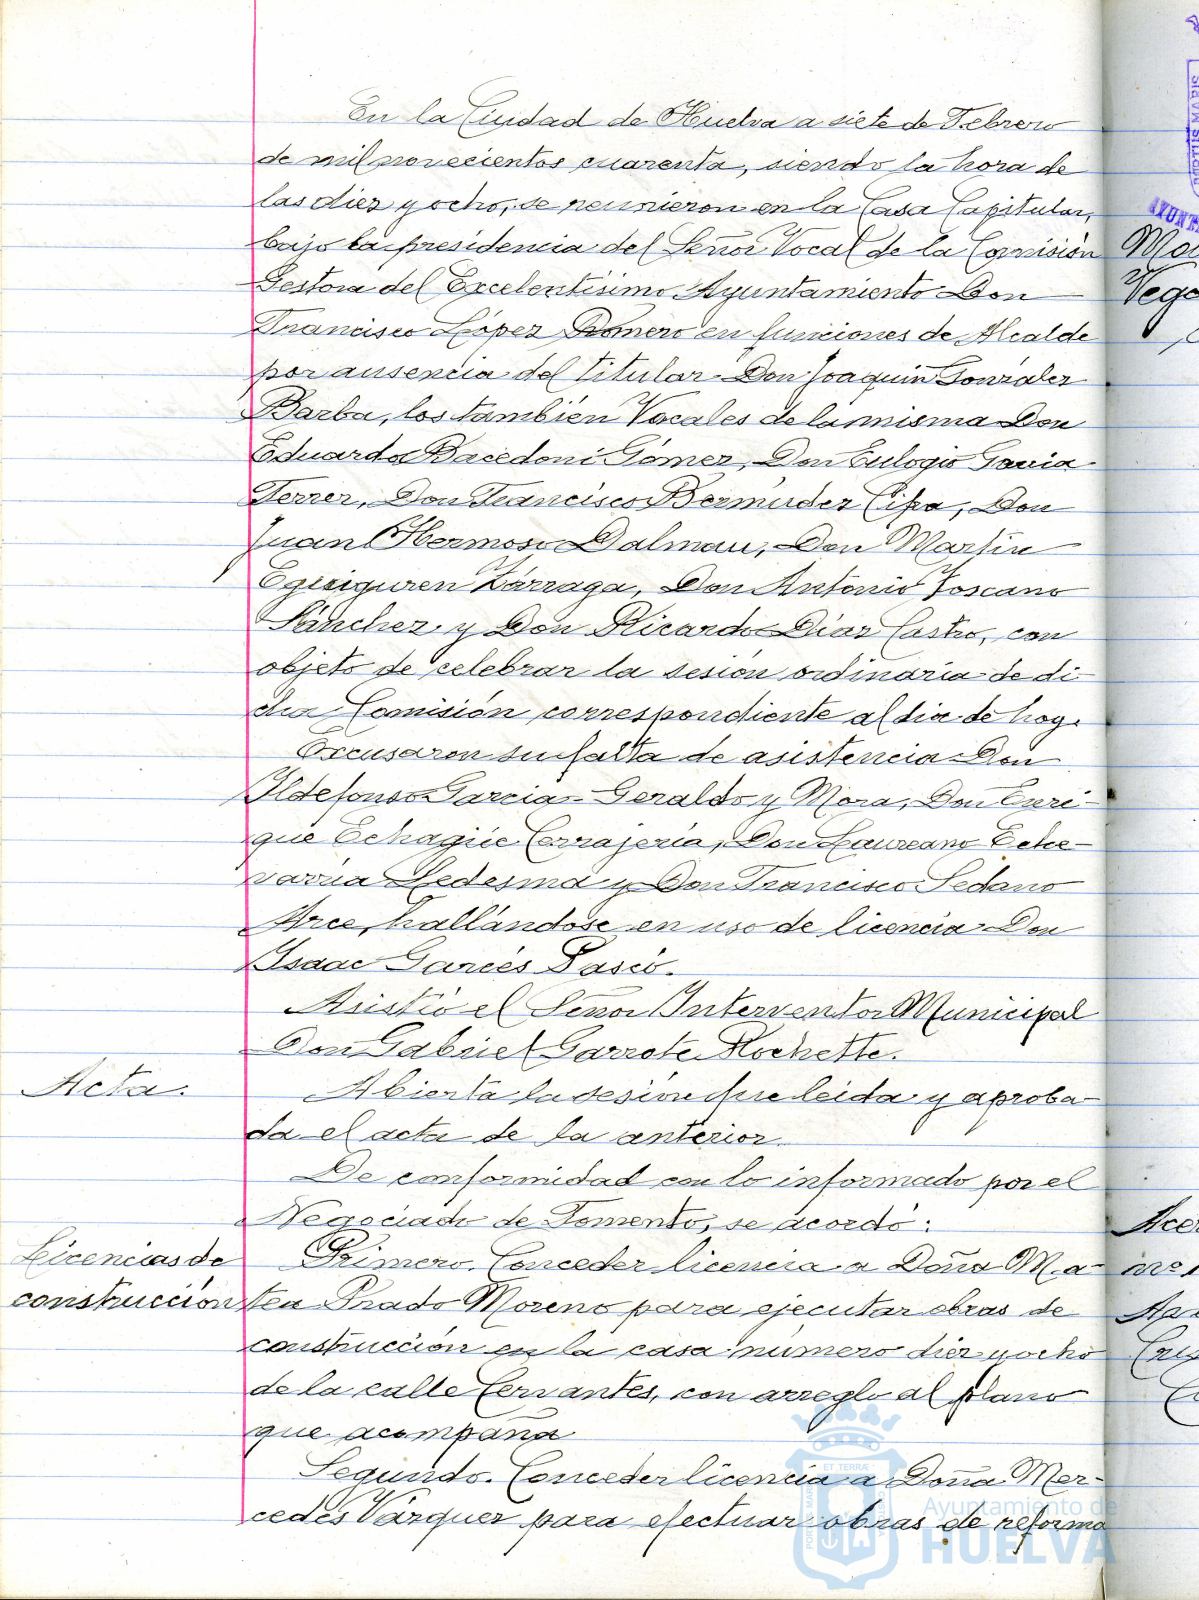 En la Ciudad de Huelva a siete de Febrero
de mil novecientos cuarenta, siendo la hora de
las diez y ocho, se reunieron en la Casa Capitular,
bajo la presidencia del Señor Vocal de la Comisión
Gestora del Excelentísimo Ayuntamiento Don
Francisco López Romero en funciones de Alcalde
por ausencia del titular Don Joaquín González
Barba, los también Vocales de la misma Don
Eduardo Bacedoni Gómez, Don Eulogio Gavia
Ferrer, Don Francisco Bermúdez Cipa, Don
Juan Hermoso Dalmau, Don Martín
Eguiguren Zárraga, Don Antonio Toscano
Sánchez y Don Ricardo Díaz Castro, con
objeto de celebrar la sesión ordinaria de di-
cha Comisión correspondiente al día de hoy.
Excusaron su falta de asistencia Don
Ildefonso Garcia-Geraldo y Mora, Don Enri-
que Echagüe Cerrajería, Don Laureano Eche-
varria Ledesma y Don Francisco Sedano
Arce, hallándose en uso de licencia Don
Isaac Garcés Pascó.
Asistió el Señor Interventor Municipal
Don Gabriel Garrote Rochette.
Acta.
Abierta la sesión fue leida y aproba-
da el acta de la anterior.
De conformidad con lo informado por el
Negociado de Fomento, se acordó:
Licencias de
construcción
Primero. Conceder licencia a Doña Ma-
tea Prado Moreno para ejecutar obras de
construcción en la casa número diez y ocho
de la calle Cervantes, con arreglo al plano
que acompaña
Segundo. Conceder licencia a Doña Mer-
cedes Vázquez para efectuar obras de reforma
Ayuntamiento de
HUELVA